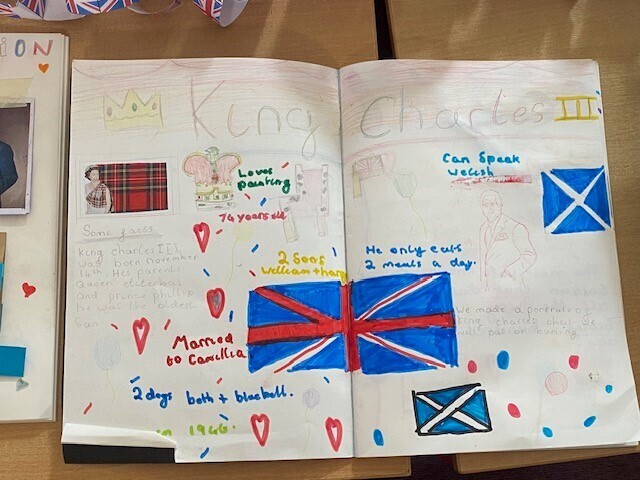 ION
King Charles III
Loves
painting
74 years old
Can Speak
welish
Some facts
King charles III
was born november
14th. His parents
Queen elizabeth
and prince phillip
he was the oldest
San
2 Sons
William + harry
He only eats
2 meals a day.
We made a portrait of
king charles
Married
to Camillia
2 dogs beth + bluebell.
in 1946.